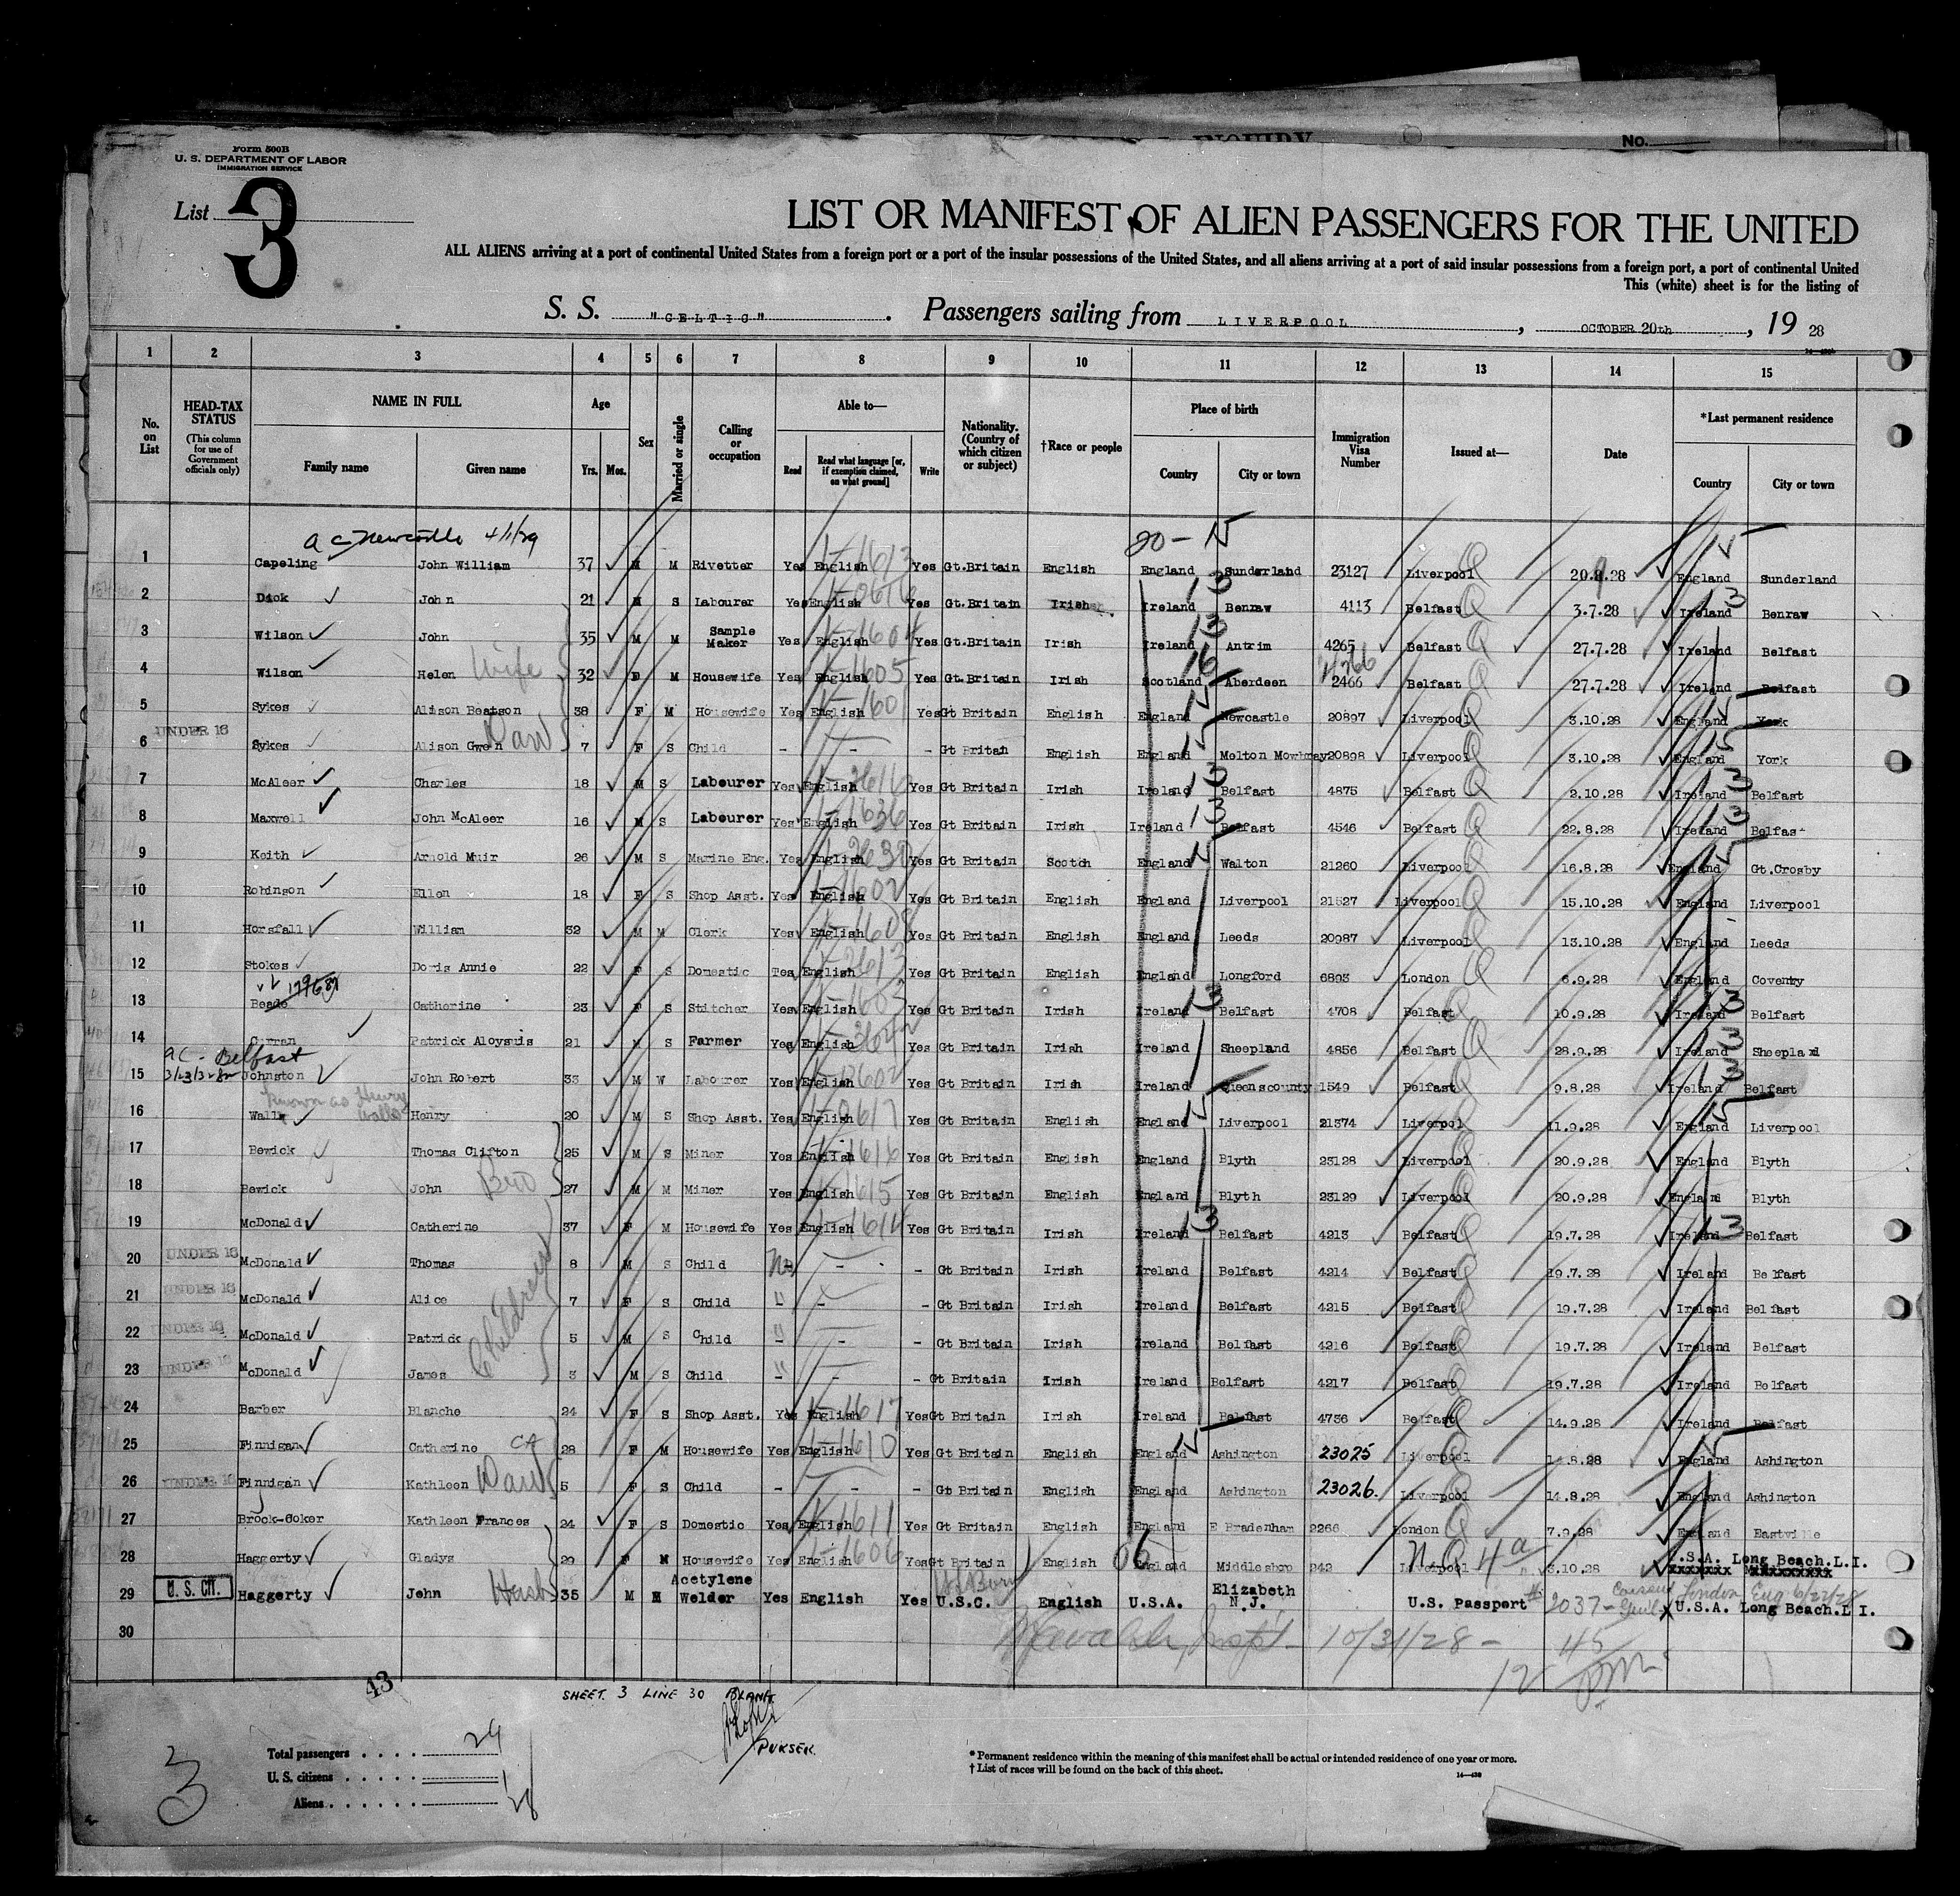 INQUIRY
No.
Form 500B
U. S. DEPARTMENT OF LABOR
IMMIGRATION SERVICE
List 3
LIST OR MANIFEST OF ALIEN PASSENGERS FOR THE UNITED
ALL ALIENS arriving at a port of continental United States from a foreign port or a port of the insular possessions of the United States, and all aliens arriving at a port of said insular possessions from a foreign port, a port of continental United
This (white) sheet is for the listing of
S. S. "CELTIC". Passengers sailing from LIVERPOOL, OCTOBER 20th, 19 28
1 2 3 4 5 6 7 8 9 10 11 12 13 14 15
No. on List
HEAD-TAX STATUS (This column for use of Government officials only)
NAME IN FULL
Family name
Given name
Age
Yrs. Mos.
Sex
Married or single
Calling or occupation
Able to—
Read
Read what language [or, if exemption claimed, on what ground]
Write
Nationality. (Country of which citizen or subject)
†Race or people
Place of birth
Country
City or town
Immigration Visa Number
Issued at—
Date
*Last permanent residence
Country
City or town
a c Newcastle 4/1/29
20 - 15
1 Capeling John William 37 M M Rivetter Yes English Yes Gt.Britain English England Sunderland 23127 Liverpool 20.9.28 England Sunderland
2 Dick John 21 M S Labourer Yes English Yes Gt.Britain Irish Ireland Benraw 4113 Belfast 3.7.28 Ireland Benraw
3 Wilson John 35 M M Sample Maker Yes English Yes Gt.Britain Irish Ireland Antrim 4265 Belfast 27.7.28 Ireland Belfast
4 Wilson Helen Wife 32 F M Housewife Yes English Yes Gt.Britain Irish Scotland Aberdeen 4266 2466 Belfast 27.7.28 Ireland Belfast
5 Sykes Alison Beatson 38 F M Housewife Yes English Yes Gt Britain English England Newcastle 20897 Liverpool 3.10.28 England York
6 UNDER 16 Sykes Alison Gwen Dau 7 F S Child - - - Gt Britain English England Melton Mowbray 20898 Liverpool 3.10.28 England York
7 McAleer Charles 18 M S Labourer Yes English Yes Gt Britain Irish Ireland Belfast 4875 Belfast 2.10.28 Ireland Belfast
8 Maxwell John McAleer 16 M S Labourer Yes English Yes Gt Britain Irish Ireland Belfast 4546 Belfast 22.8.28 Ireland Belfast
9 Keith Arnold Muir 26 M S Marine Eng. Yes English Yes Gt Britain Scotch England Walton 21260 Liverpool 16.8.28 England Gt.Crosby
10 Robinson Ellen 18 F S Shop Asst. Yes English Yes Gt Britain English England Liverpool 21527 Liverpool 15.10.28 England Liverpool
11 Horsfall William 32 M M Clerk Yes English Yes Gt Britain English England Leeds 20987 Liverpool 13.10.28 England Leeds
12 Stokes Doris Annie 22 F S Domestic Yes English Yes Gt Britain English England Longford 6893 London 6.9.28 England Coventry
13 Beade Catherine 23 F S Stitcher Yes English Yes Gt Britain Irish Ireland Belfast 4708 Belfast 10.9.28 Ireland Belfast
14 Curran Patrick Aloysuis 21 M S Farmer Yes English Yes Gt Britain Irish Ireland Sheepland 4856 Belfast 28.9.28 Ireland Sheepland
a c - Belfast
15 Johnston John Robert 33 M W Labourer Yes English Yes Gt Britain Irish Ireland Queenscounty 1549 Belfast 9.8.28 Ireland Belfast
Known as Henry Walls
16 Walls Henry 20 M S Shop Asst. Yes English Yes Gt Britain English England Liverpool 21374 Liverpool 11.9.28 England Liverpool
17 Bewick Thomas Clifton 25 M S Miner Yes English Yes Gt Britain English England Blyth 23128 Liverpool 20.9.28 England Blyth
18 Bewick John Bro 27 M M Miner Yes English Yes Gt Britain English England Blyth 23129 Liverpool 20.9.28 England Blyth
19 McDonald Catherine 37 F M Housewife Yes English Yes Gt Britain Irish Ireland Belfast 4213 Belfast 19.7.28 Ireland Belfast
20 UNDER 16 McDonald Thomas 8 M S Child No - - Gt Britain Irish Ireland Belfast 4214 Belfast 19.7.28 Ireland Belfast
21 UNDER 16 McDonald Alice Children 7 F S Child " - - Gt Britain Irish Ireland Belfast 4215 Belfast 19.7.28 Ireland Belfast
22 UNDER 16 McDonald Patrick 5 M S Child " - - Gt Britain Irish Ireland Belfast 4216 Belfast 19.7.28 Ireland Belfast
23 UNDER 16 McDonald James 3 M S Child " - - Gt Britain Irish Ireland Belfast 4217 Belfast 19.7.28 Ireland Belfast
24 Barber Blanche 24 F S Shop Asst. Yes English Yes Gt Britain Irish Ireland Belfast 4736 Belfast 14.9.28 Ireland Belfast
25 Finnigan Catherine 28 F M Housewife Yes English Yes Gt Britain English England Ashington 23025 Liverpool 14.8.28 England Ashington
26 UNDER 16 Finnigan Kathleen Dau 5 F S Child - - - Gt Britain English England Ashington 23026. Liverpool 14.8.28 England Ashington
27 Brock-Coker Kathleen Frances 24 F S Domestic Yes English Yes Gt Britain English England E Bradenham 2266 London 7.9.28 England Eastville
28 Haggerty Gladys 29 F M Housewife Yes English Yes Gt Britain English England Middlesbop 242 Liverpool 3.10.28 U.S.A. Long Beach.L.I.
29 U. S. CIT. Haggerty John Husb 35 M M Acetylene Welder Yes English Yes U.S.C. English U.S.A. Elizabeth N.J. U.S. Passport # 2037 London Eng 6/22/28 U.S.A. Long Beach.L I.
30 10/31/28 -
43
SHEET 3 LINE 30 BLANK
PURSER.
3
Total passengers . . . . 29
U. S. citizens . . . . . 1
Aliens . . . . . . 28
* Permanent residence within the meaning of this manifest shall be actual or intended residence of one year or more.
† List of races will be found on the back of this sheet.